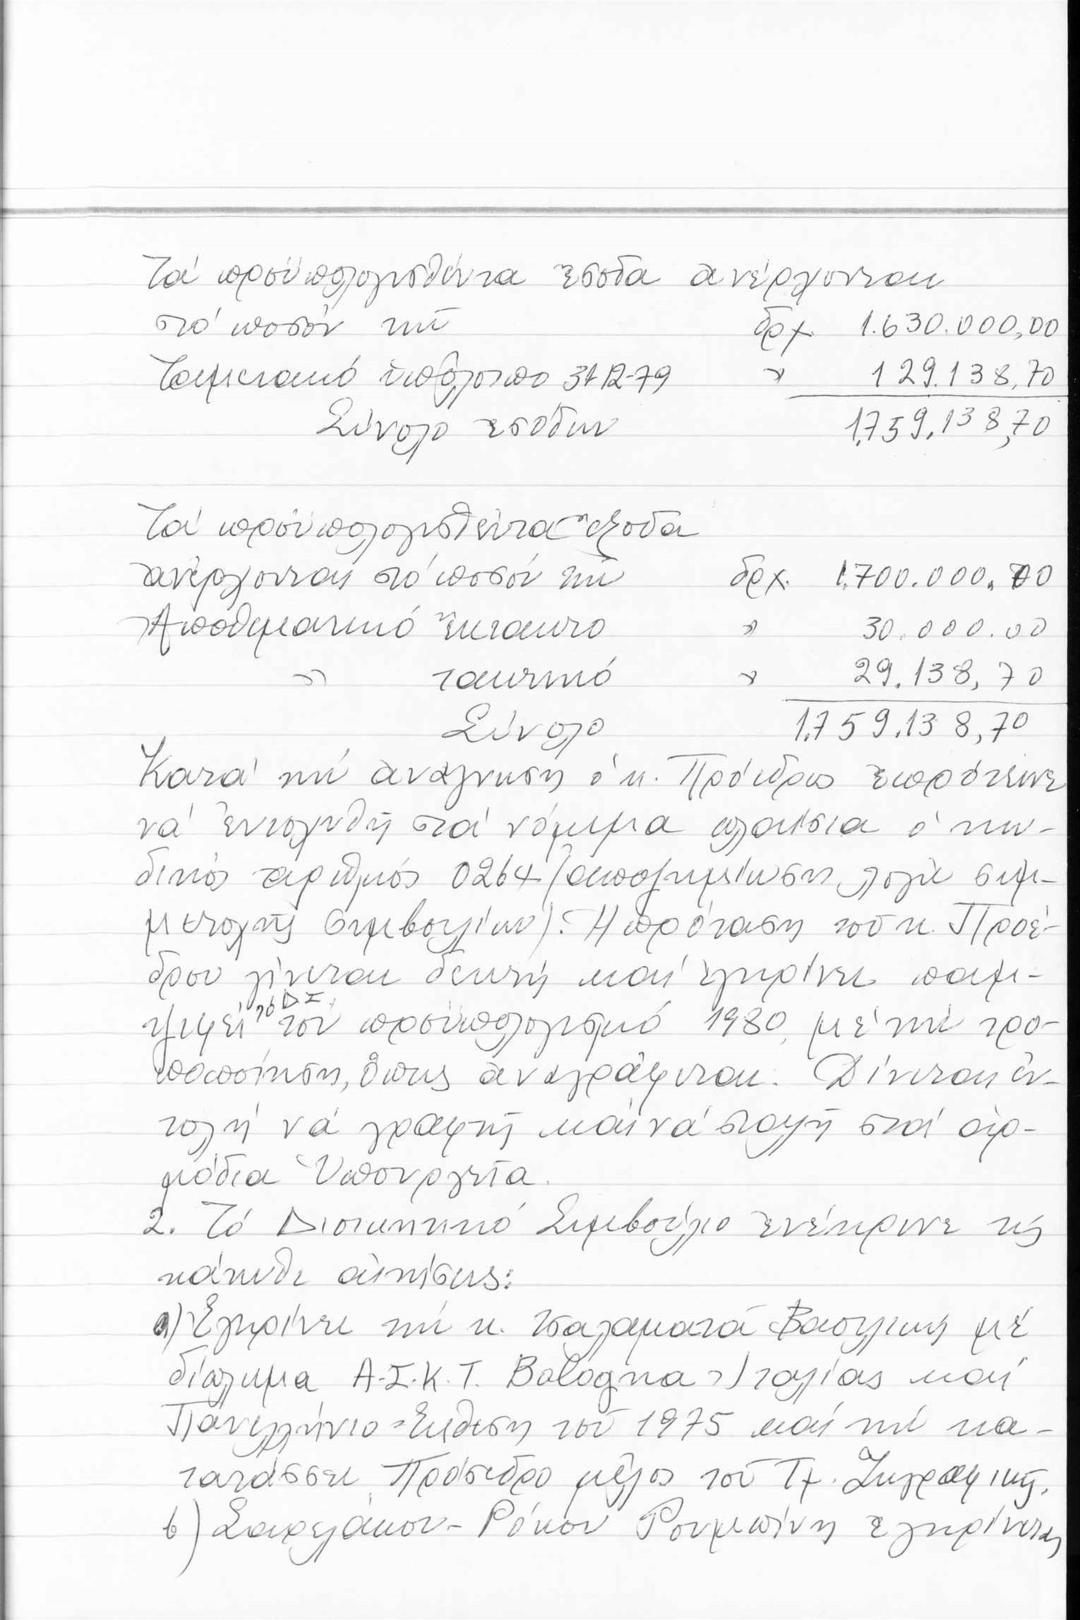 Τά προϋπολογισθέντα ἔσοδα ἀνέρχονται
στό ποσόν τῶν δρχ. 1.630.000,00
Ταμειακό ὑπόλοιπο 31-12-79 " 129.138,70
Σύνολο ἐσόδων 1.759.138,70
Τά προϋπολογισθέντα ἔξοδα
ἀνέρχονται στό ποσόν τῶν δρχ. 1.700.000.00
Ἀποθεματικό ἔκτακτο " 30.000.00
" τακτικό " 29.138,70
Σύνολο 1.759.138,70
Κατά τήν ἀνάγνωση ὁ κ. Πρόεδρος ἐπρότεινε
νά ἐνισχυθῆ στά νόμιμα πλαίσια ὁ κω-
δικός ἀριθμός 0264 (ἀποζημίωση λόγω συμ-
μετοχῆς συμβουλίων). Ἡ πρόταση τοῦ κ. Προέ-
δρου γίνεται δεκτή καί ἐγκρίνει παμ-
ψηφεί τό Δ.Σ. τόν προϋπολογισμό 1980, μέ τήν τρο-
ποποίηση, ὅπως ἀναγράφεται. Δίνεται ἐν-
τολή νά γραφῆ καί νά σταλῆ στά ἁρ-
μόδια Ὑπουργεῖα.
2. Τό Διοικητικό Συμβούλιο ἐνέκρινε τίς
κάτωθι αἰτήσεις:
α) Ἐγκρίνει τήν κ. Τσαλαματᾶ Βασιλική μέ
δίπλωμα Α.Σ.Κ.Τ. Bologna Ἰταλίας καί
Πανελλήνιο Ἔκθεση τοῦ 1975 καί τήν κα-
τατάσσει Πρόσεδρο μέλος τοῦ Τμ. Ζωγραφικῆς.
β) Σαρελάκου - Ρόκου Ρουμπίνη ἐγκρίνεται